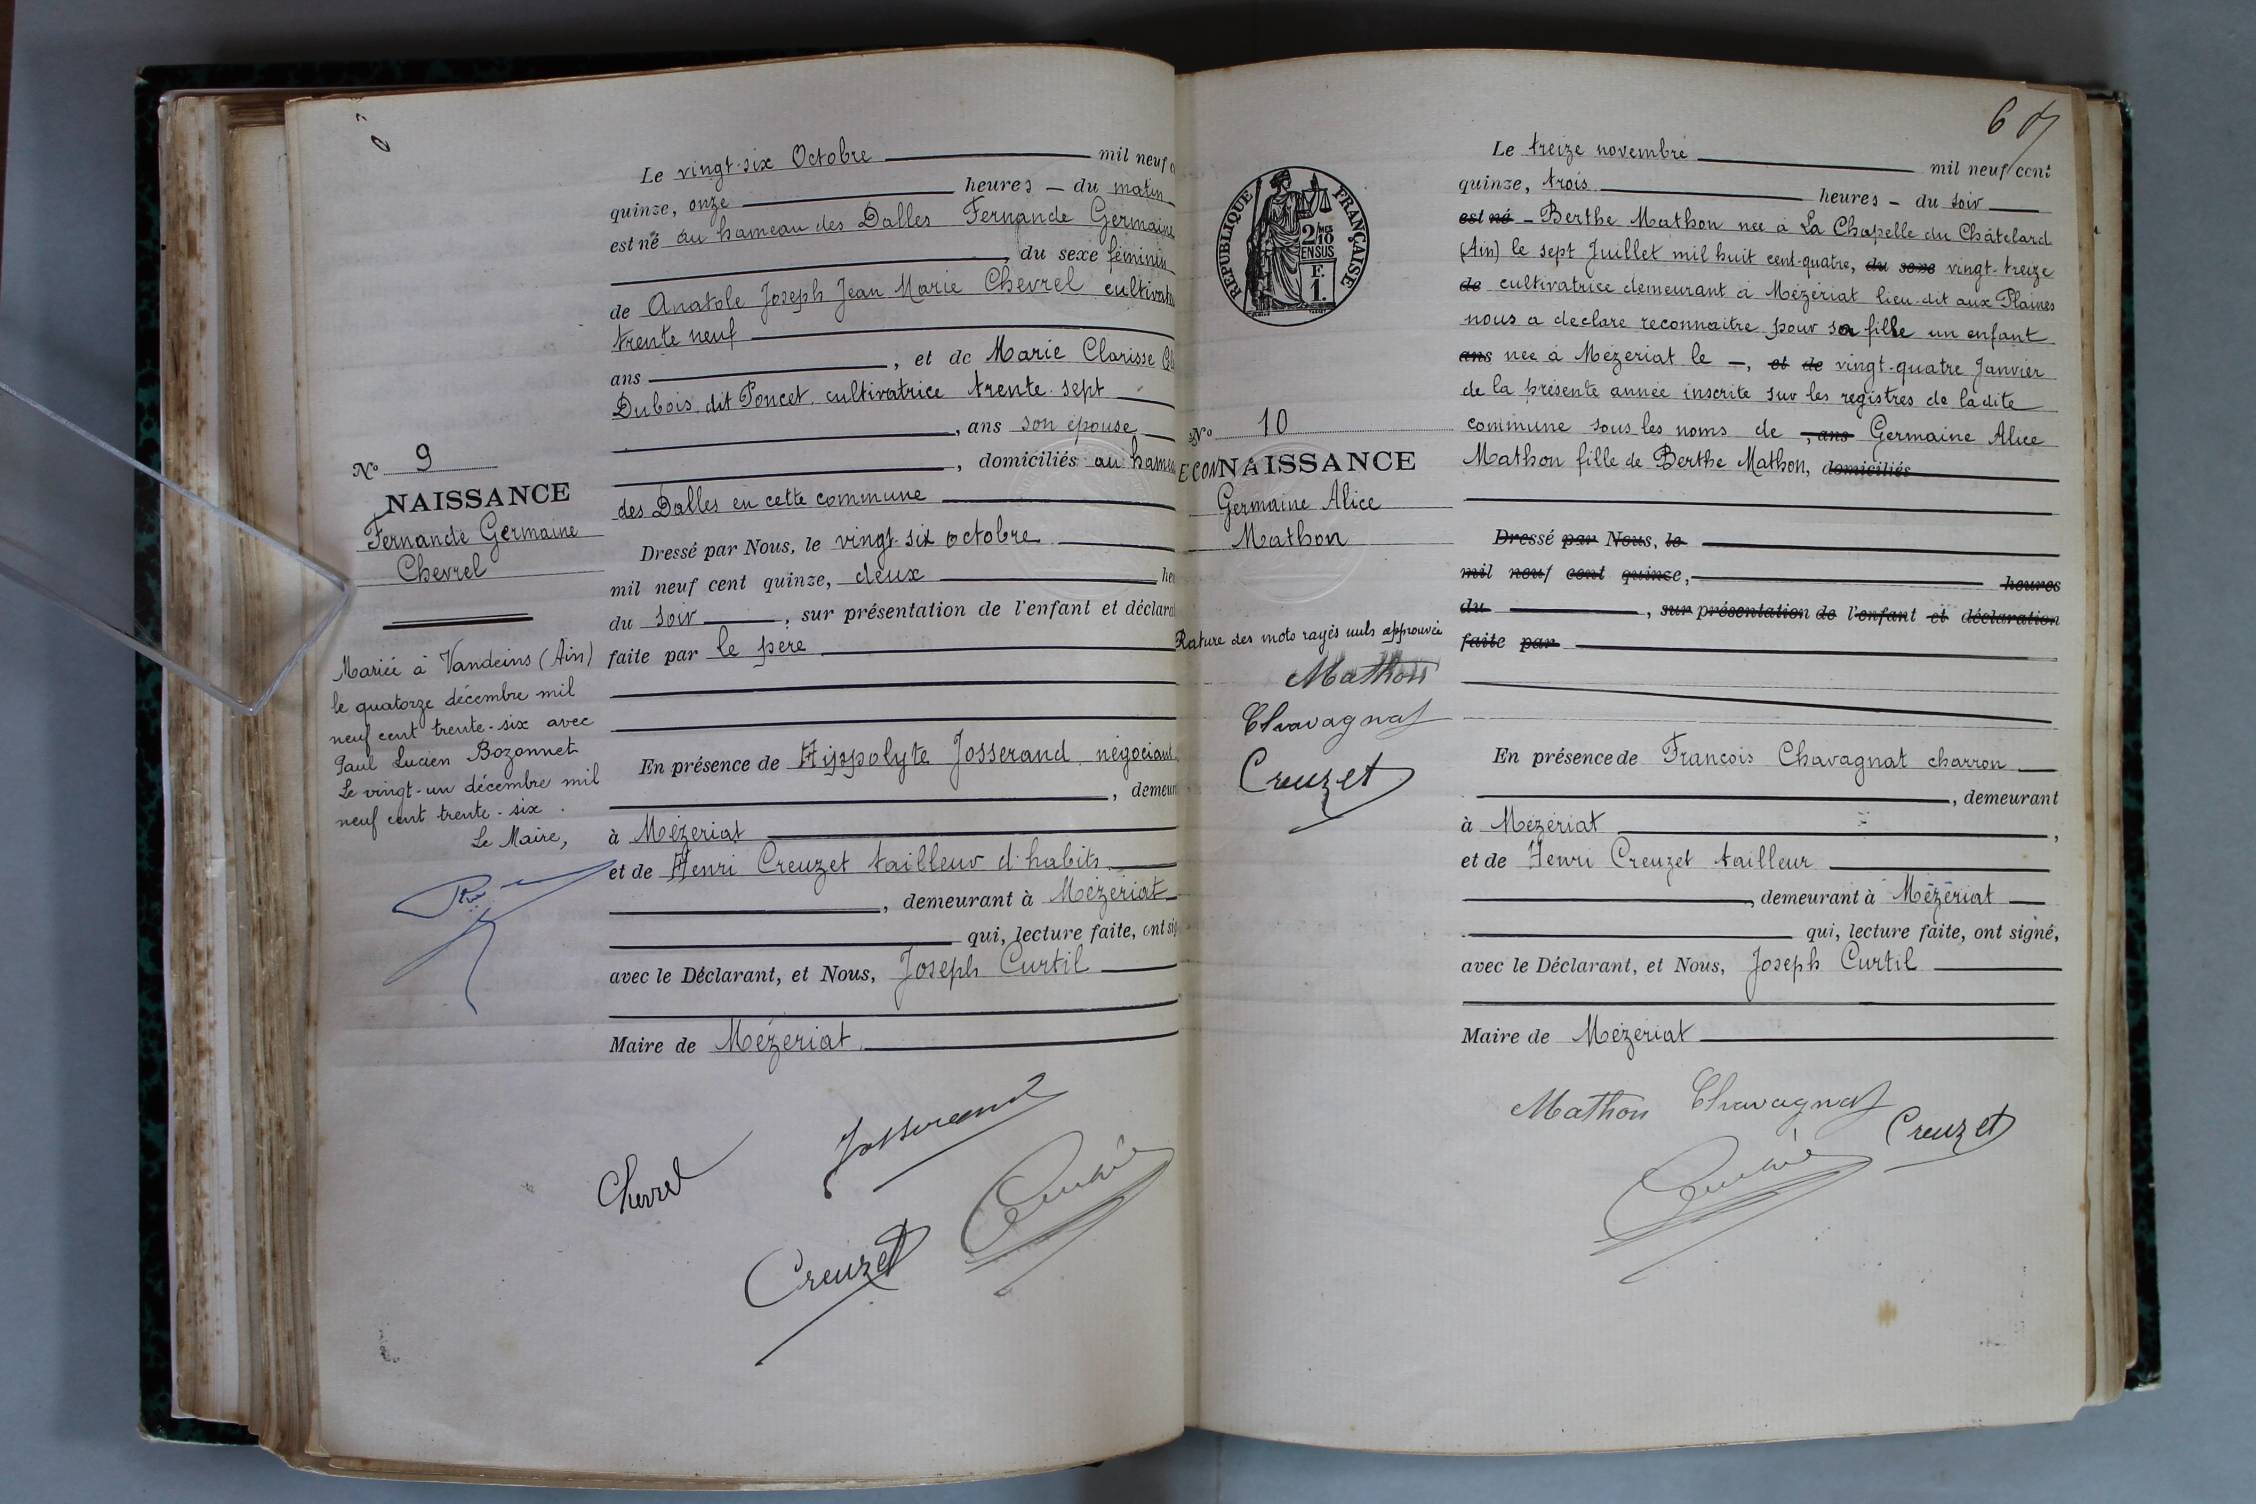 Le vingt-six Octobre mil neuf
quinze, onze heures — du matin
est né au hameau des Dalles Fernande Germaine
, du sexe féminin
de Anatole Joseph Jean Marie Chevrel cultivate
trente neuf
ans , et de Marie Clarisse
Dubois dit Poncet, cultivatrice trente-sept
, ans son épouse
, domiciliés au hamea
des Dalles en cette commune
Dressé par Nous, le vingt-six octobre
mil neuf cent quinze, deux he
du soir , sur présentation de l'enfant et déclara
faite par le père
En présence de Hyppolyte Josserand, négociant
, demeur
à Mézériat
et de Henri Creuzet tailleur d'habits
, demeurant à Mézériat
qui, lecture faite, ont sig
avec le Déclarant, et Nous, Joseph Curtil
Maire de Mézériat
Chevrel Josserand
Creuzet
N° 9
NAISSANCE
Fernande Germaine
Chevrel
Mariée à Vandeins (Ain)
le quatorze décembre mil
neuf cent trente-six avec
Paul Lucien Bozonnet
Le vingt-un décembre mil
neuf cent trente-six.
Le Maire,
67
RÉPUBLIQUE FRANÇAISE
2/10 MES
EN SUS
F.
1.
Le treize novembre mil neuf cent
quinze, trois heures — du soir
est né — Berthe Mathon née à La Chapelle du Châtelard
(Ain) le sept Juillet mil huit cent-quatre, du sexe vingt-treize
de cultivatrice demeurant à Mézériat lieu-dit aux Plaines
nous a déclaré reconnaitre pour sa fille un enfant
ans née à Mézériat le —, et de vingt-quatre Janvier
de la présente année inscrite sur les registres de ladite
commune sous les noms de , ans Germaine Alice
Mathon fille de Berthe Mathon, domiciliés
Dressé par Nous, le
mil neuf cent quinze, heures
du , sur présentation de l'enfant et déclaration
faite par
En présence de François Chavagnat charron
, demeurant
à Mézériat ,
et de Henri Creuzet tailleur
, demeurant à Mézériat
qui, lecture faite, ont signé,
avec le Déclarant, et Nous, Joseph Curtil
Maire de Mézériat
Mathon Chavagnat Creuzet
N° 10
ECONNAISSANCE
Germaine Alice
Mathon
Rature des mots rayés nuls approuvée
Mathon
Chavagnat
Creuzet